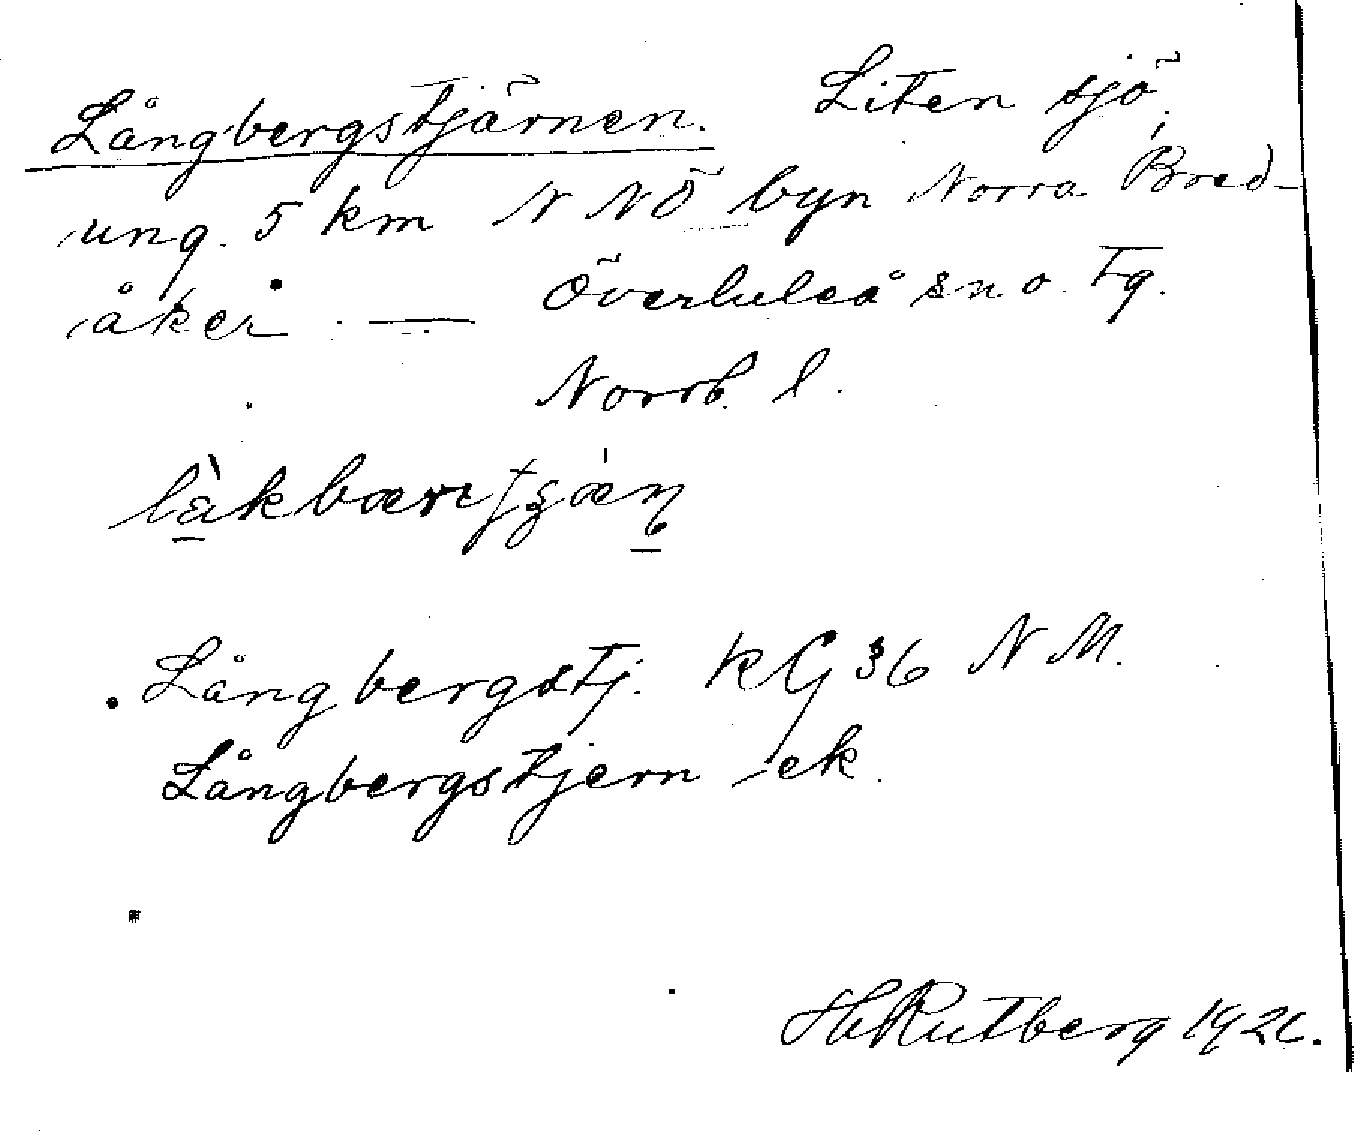 Långbergstjärnen. Liten sjö,
ung. 5 km N NÖ byn Norra Bred-
åker. — Överluleå sn o. Tg.
Norrb. l.
Långbergstj. KG 36 N M.
Långbergstjern ek.
HRutberg 192